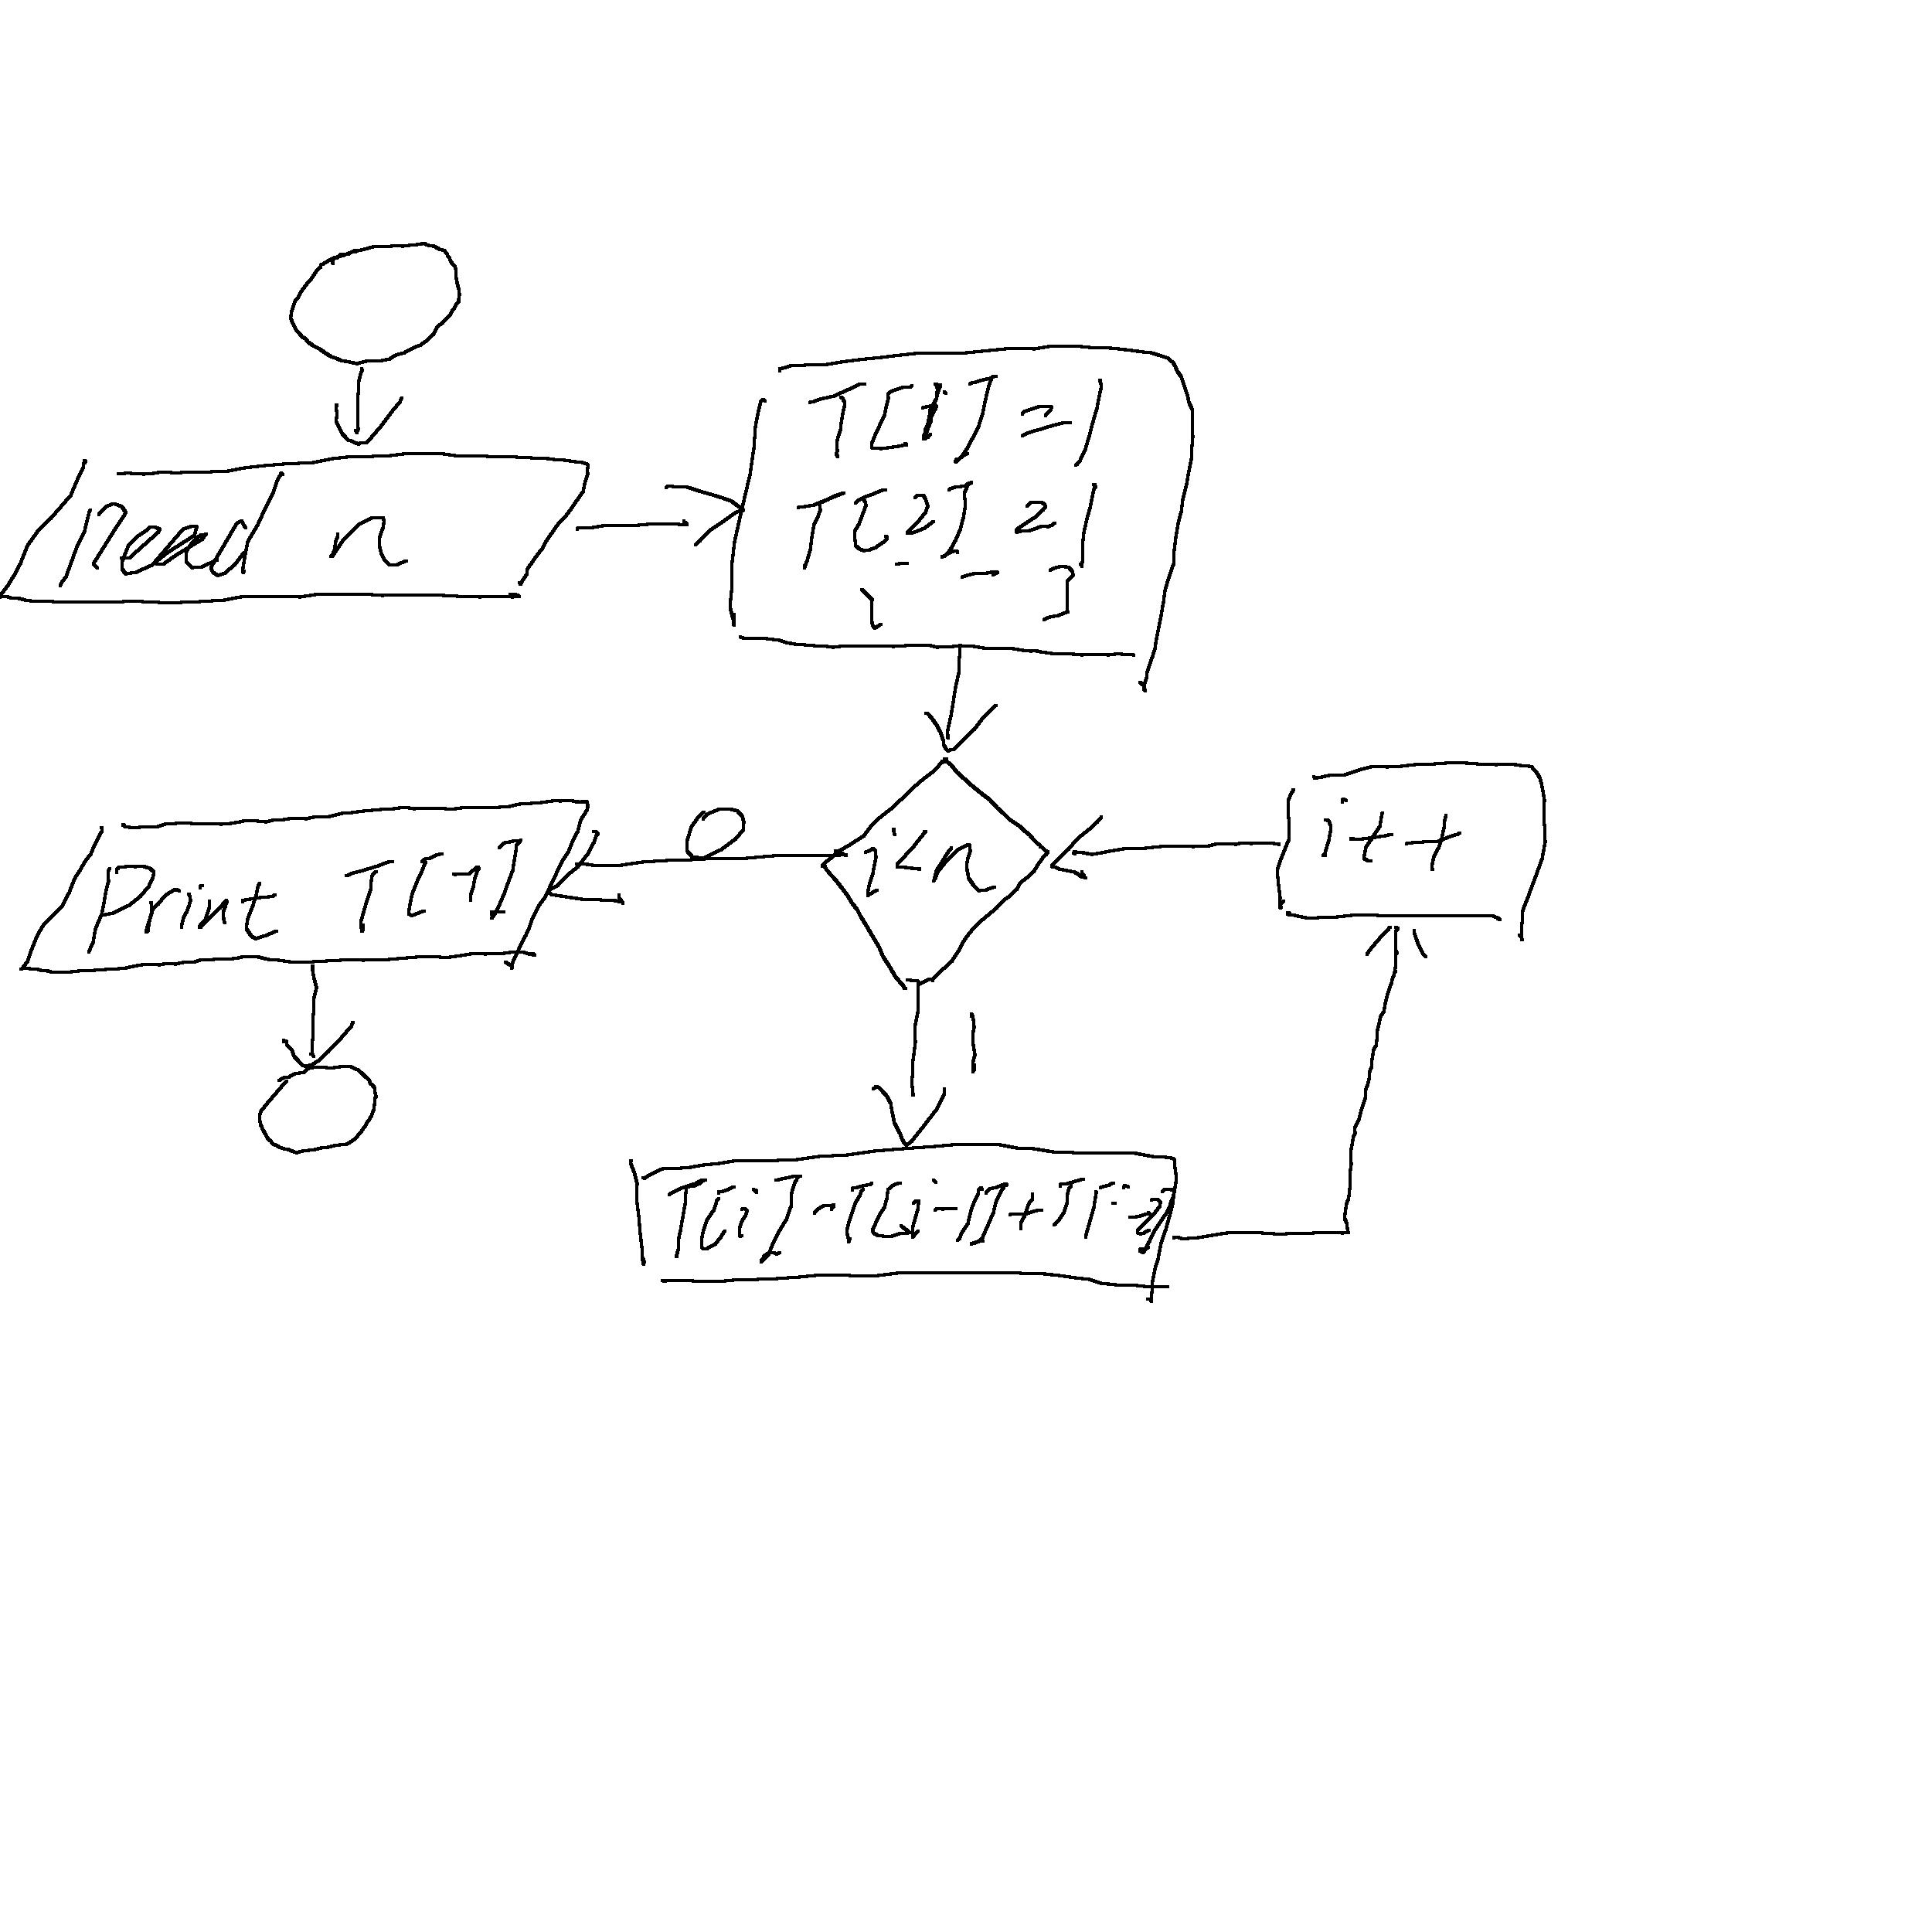 Read n
T[1]=1
T[2]=1
i = 3
i<n
0
Print T[-1]
i++
1
T[i]=T[i-1]+T[i-2]